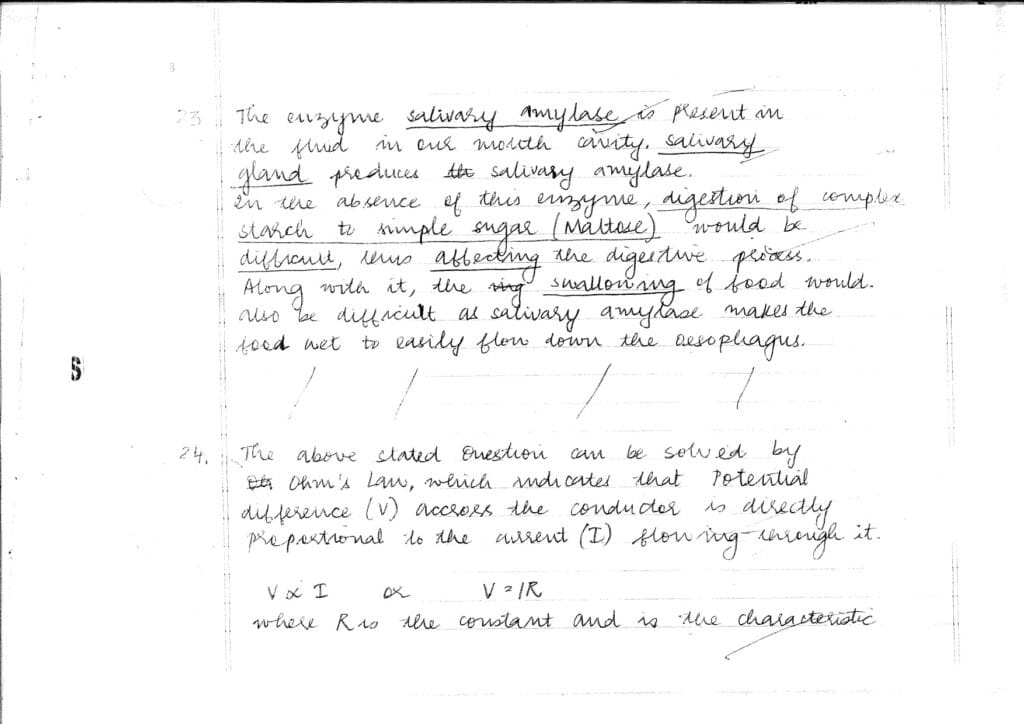 23 The enzyme salivary amylase is present in
the fluid in our mouth cavity. salivary
gland produces the salivary amylase.
In the absence of this enzyme, digestion of complex
starch to simple sugar (Maltose) would be
difficult, thus affecting the digestive process.
Along with it, the swallowing of food would.
also be difficult as salivary amylase makes the
food wet to easily flow down the aesophagus.
5
24. The above stated Question can be solved by
Ohm's Law, which indicates that Potential
difference (V) accross the conductor is directly
propertional to the current (I) flowing through it.
V ∝ I or V = IR
where R is the constant and is the characteristic